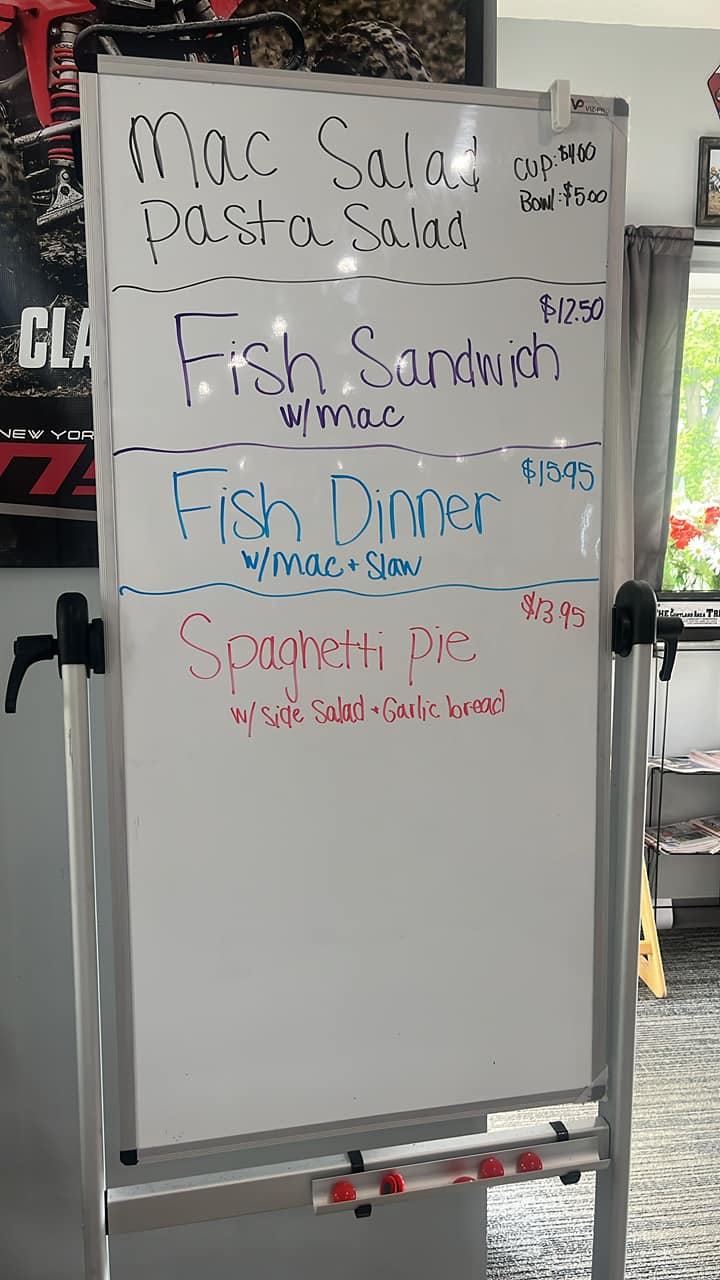 VIZ-PRO
Mac Salad
Cup: $4.00
Pasta Salad
Bowl: $5.00
$12.50
Fish Sandwich
w/mac
$15.95
Fish Dinner
w/mac + Slaw
$13.95
Spaghetti pie
w/ Side Salad + Garlic bread
CLA
NEW YOR